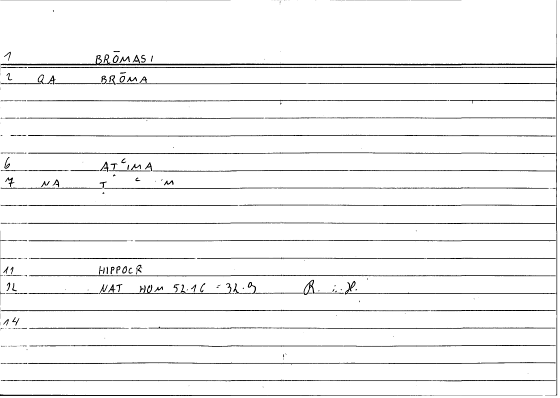 1 BRŌMASI
2 QA BRŌMA
6 AṬʿIMA
7 NA Ṭ ʿ M
11 HIPPOCR
12 NAT HOM 52.16 = 32.9
14